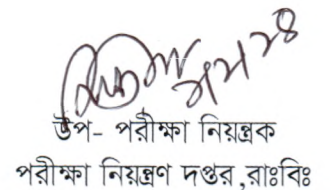 উপ- পরীক্ষা নিয়ন্ত্রক
পরীক্ষা নিয়ন্ত্রণ দপ্তর ,রাঃবিঃ